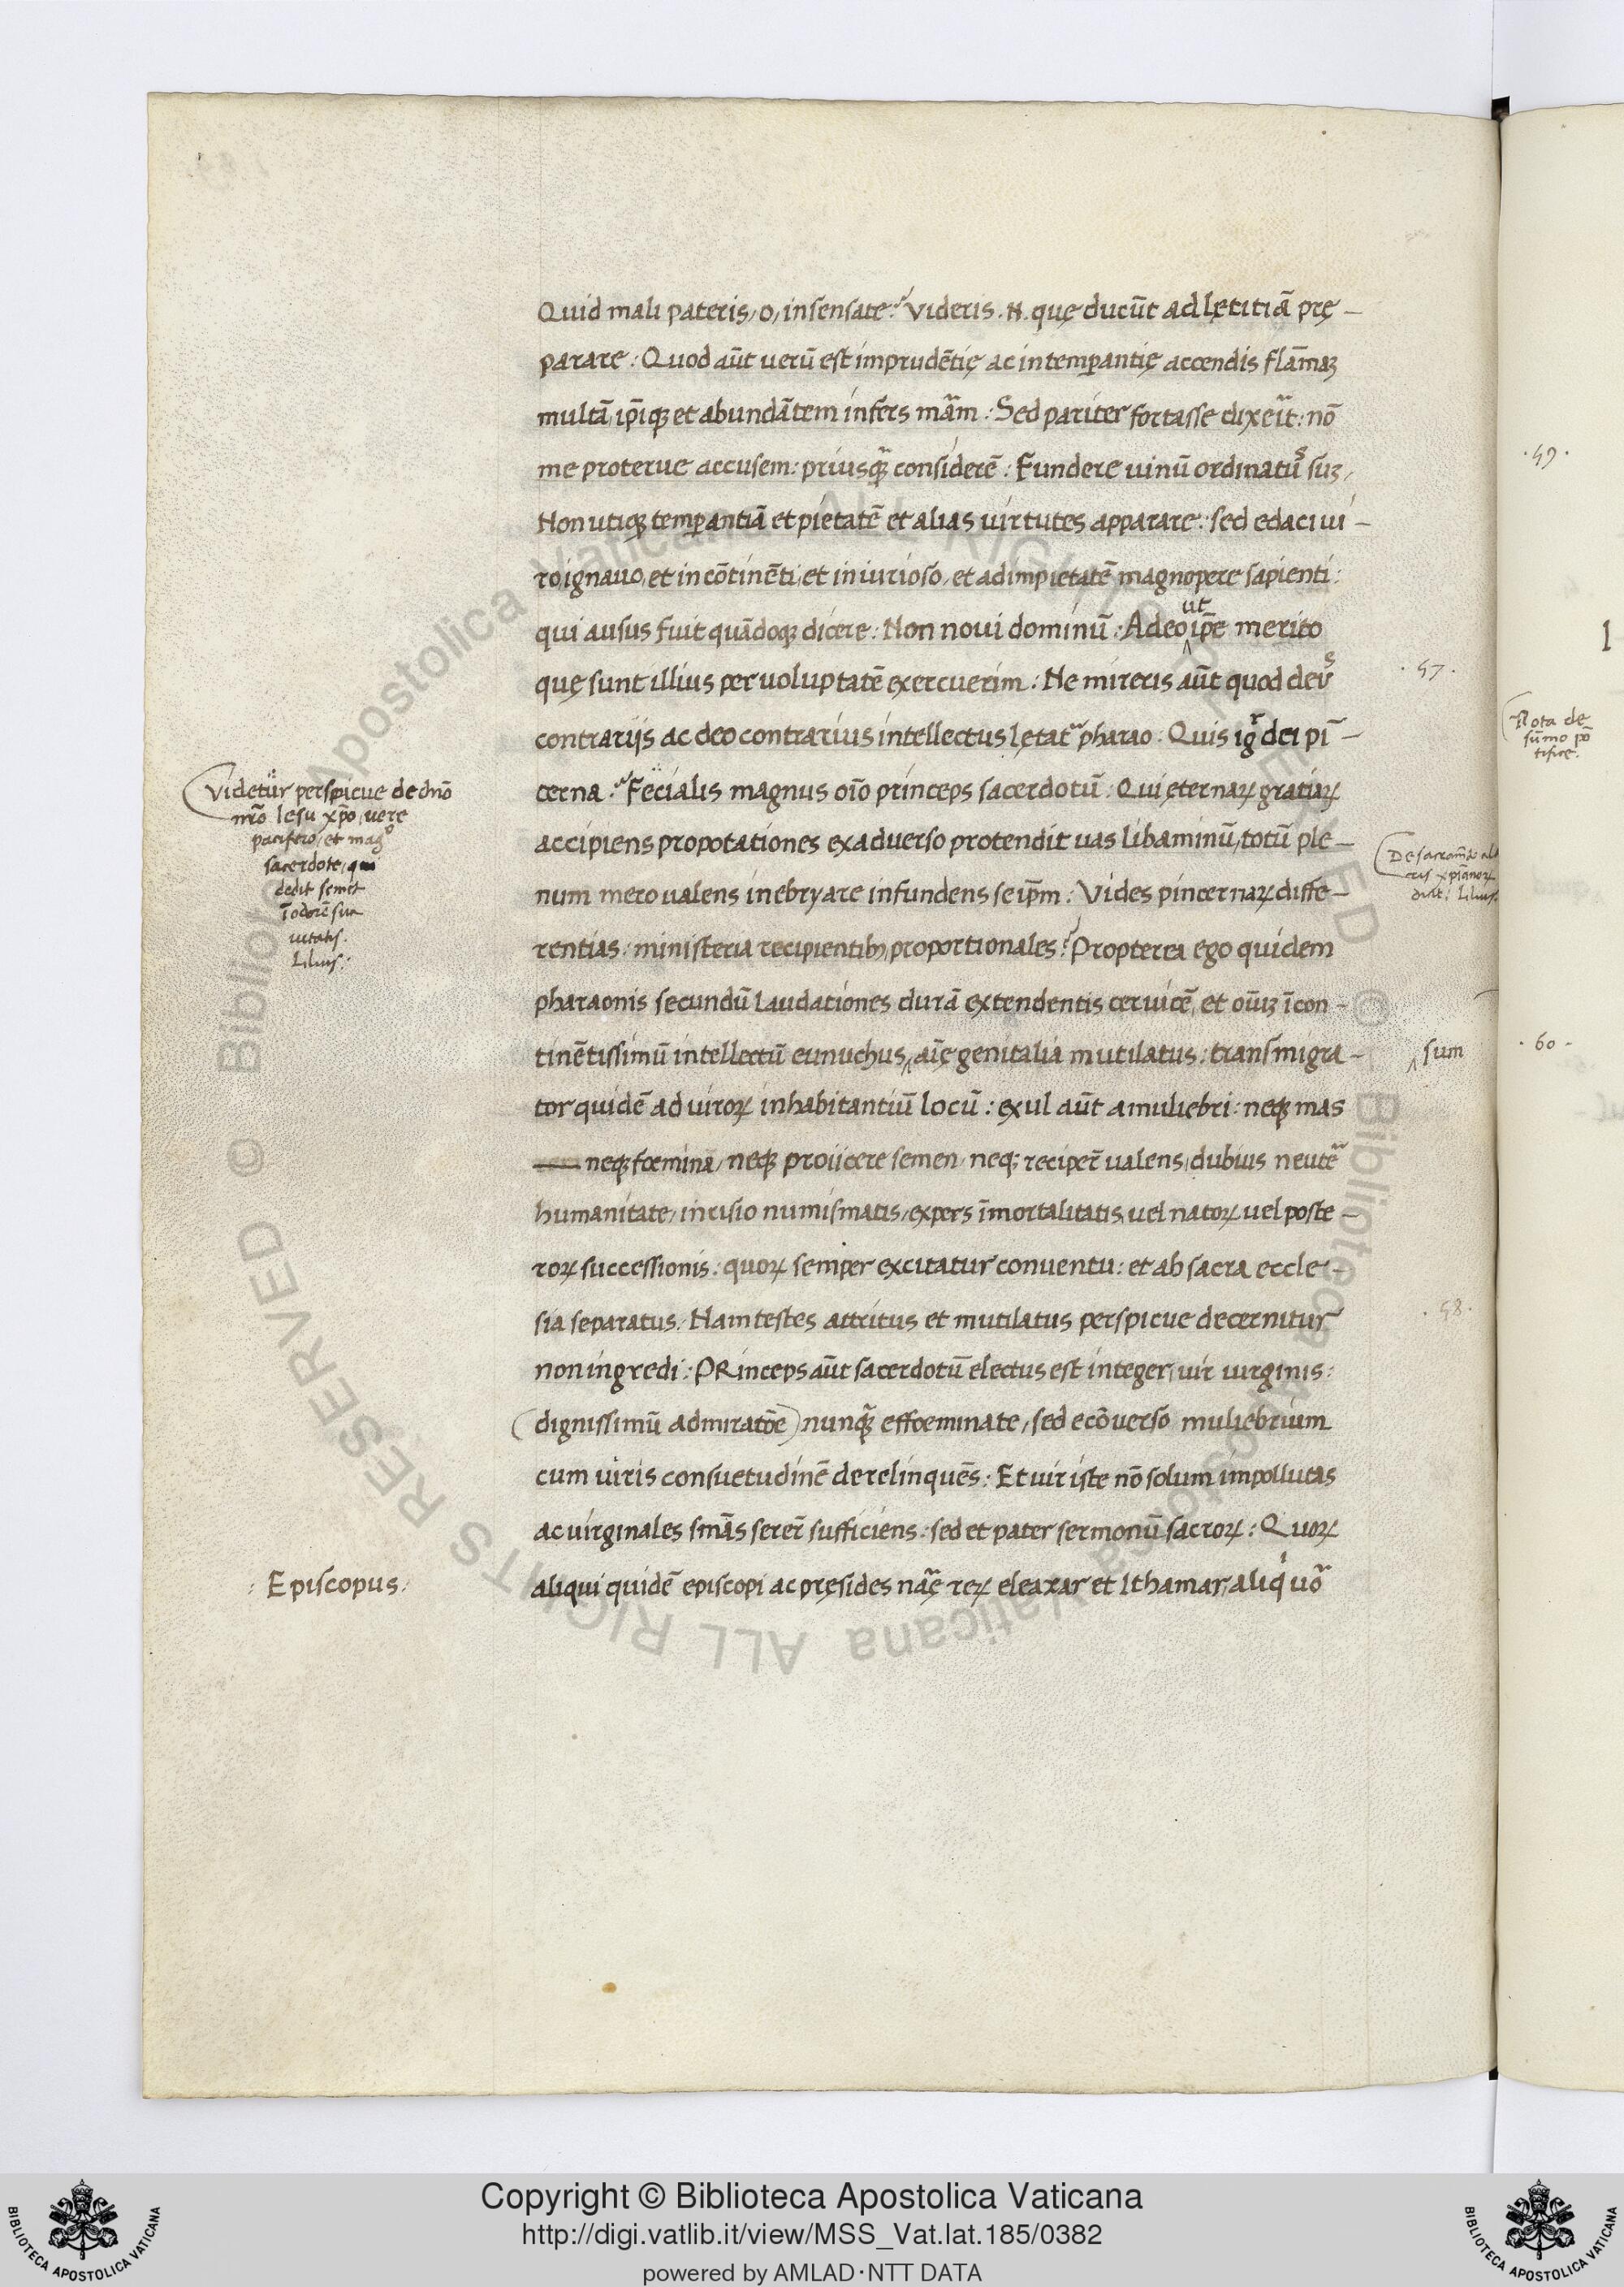 Quid mali pateris, o, insensate? Videris .N. quę ducūt ad lętitiā prę-
parare: Quod aūt uerū est imprudētię ac intemperantię accendis flāmaꝫ
multā, ip̄iqꝫ et abundātem infers mām: Sed pariter fortasse dixeīt: nō
me proterue accusem: priusqꝫ considerē: Fundere uinū ordinatus suꝫ,
Non utiqꝫ temperantiā et pietatē et alias uirtutes apparare: sed edaci ui-
ro ignauo, et incōtinēti, et iniurioso, et ad impietatē magnopere sapienti:
qui ausus fuit quādoqꝫ dicere: Non noui dominū: Adeo ut ip̄e merito
quę sunt illius per uoluptatē exercuerim: Ne mireris aūt quod deus
contrarijs ac deo contrarius intellectus lętatr pharao: Quis igr dei pī-
cerna? Fecialis magnus oīo princeps sacerdotū: Qui ęternaꝝ gratiaꝝ
accipiens propotationes ex aduerso protendit uas libaminū, totū ple-
num mero ualens inebryare infundens seip̄m: Vides pincernaꝝ diffe-
rentias: ministeria recipientibꝫ proportionales? Propterea ego quidem
pharaonis secundū laudationes durā extendentis ceruicē, et oīuꝫ īcon-
tinētissimū intellectū eunuchus, aīę genitalia mutilatus: transmigra-
tor quidē ad uiroꝝ inhabitantiū locū: exul aūt a muliebri: neqꝫ mas
neqꝫ foemina, neqꝫ proijcere semen, neqꝫ reciper̄ ualens, dubius neutra
humanitate, incisio numismatis, expers īmortalitatis, uel natoꝝ uel poste-
roꝝ successionis: quoꝝ semper excitatur conuentu: et ab sacra eccle-
sia separatus. Nam testes attritus et mutilatus perspicue decernitur
non ingredi: PRinceps aūt sacerdotū electus est integer, uir uirginis:
(dignissimū admiratōe) nunqꝫ effoeminate, sed ecōuerso muliebrium
cum uiris consuetudinē derelinquēs: Et uir iste nō solum impollutas
ac uirginales smās serer̄ sufficiens: sed et pater sermonū sacroꝝ: Quoꝝ
aliqui quidē episcopi ac pręsides nāę reꝝ eleazar et Ithamar, aliqi uō
Videtur perspicue de dnō
nrō Iesu xp̄o, uere
pacifero, et mago
sacerdote, qui
dedit semet
ī odorē sua
uitatis.
Lilius:
: Episcopus:
. 57 .
sum
. 58 .
. 59 .
Nota de
sūmo pō
tifice.
. 60 .